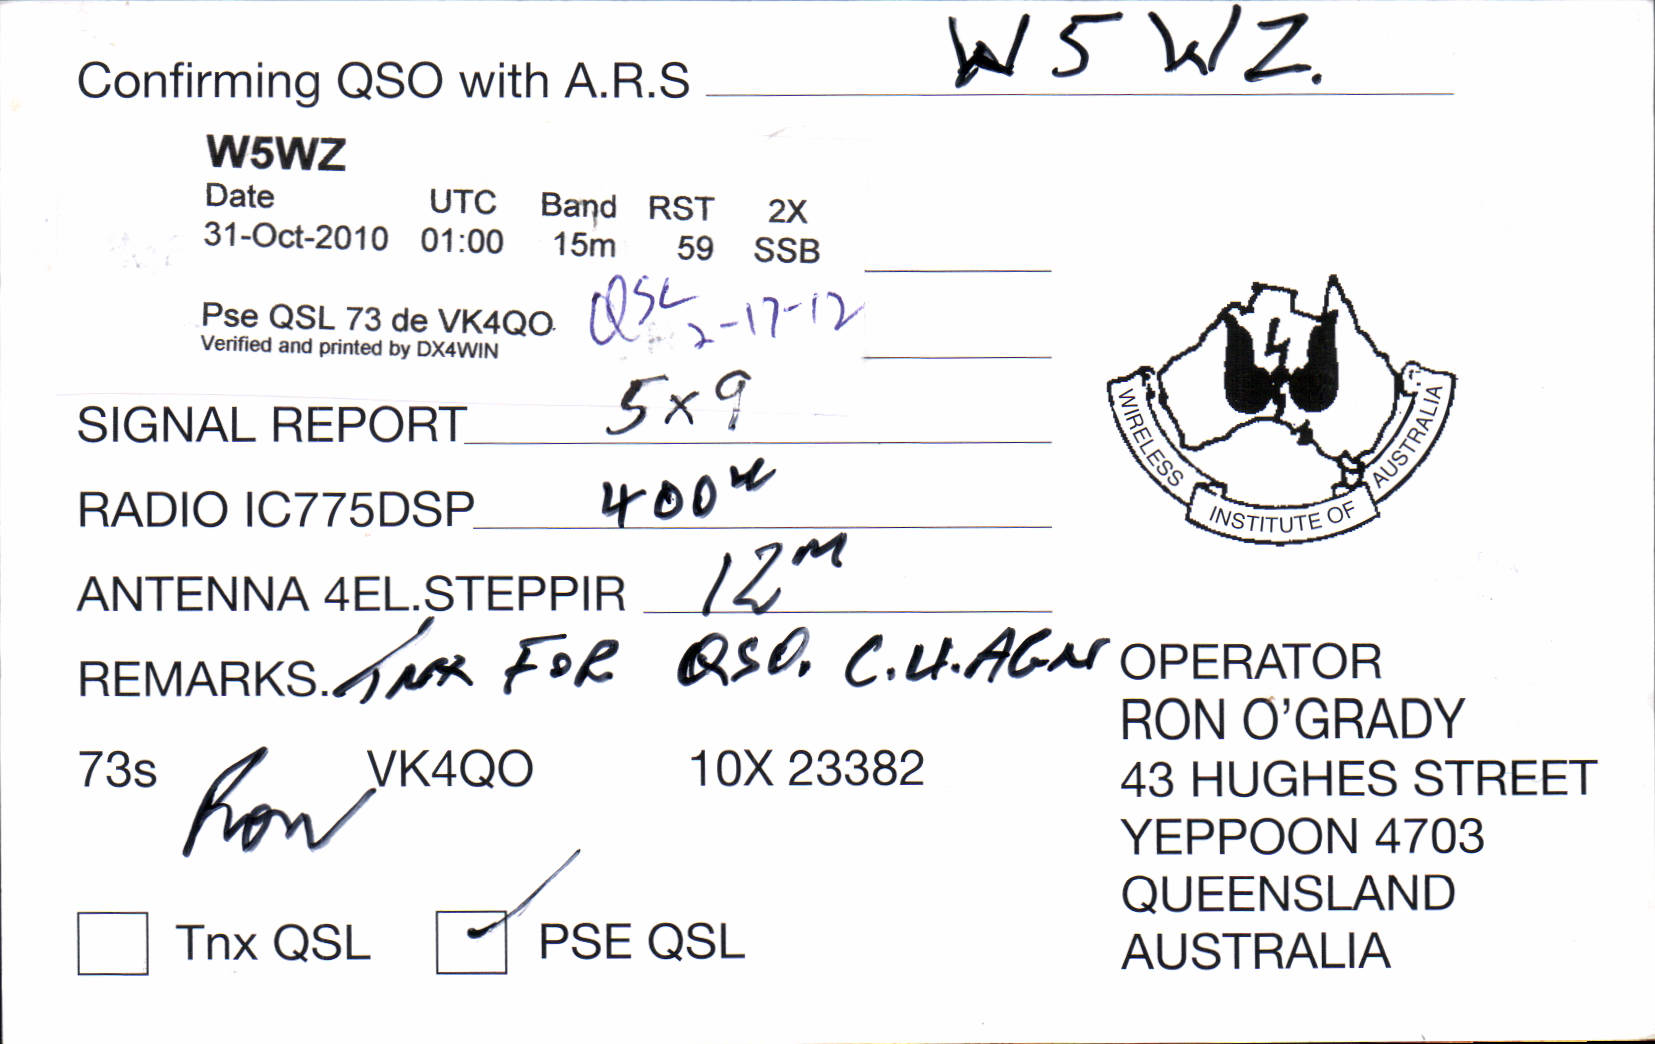 Confirming QSO with A.R.S W5WZ.
W5WZ
Date UTC Band RST 2X
31-Oct-2010 01:00 15m 59 SSB
Pse QSL 73 de VK4QO.
Verified and printed by DX4WIN
QSL
2-17-12
SIGNAL REPORT 5x9
RADIO IC775DSP 400W
ANTENNA 4EL.STEPPIR 12M
REMARKS. TNX FOR QSO. C.U.AGN
73s Ron VK4QO 10X 23382
Tnx QSL PSE QSL
WIRELESS INSTITUTE OF AUSTRALIA
OPERATOR
RON O'GRADY
43 HUGHES STREET
YEPPOON 4703
QUEENSLAND
AUSTRALIA